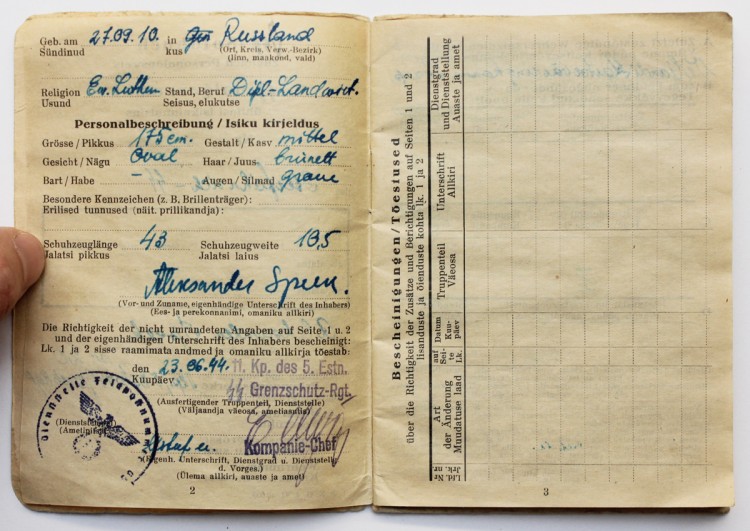 Geb. am 27.09.10. in Russland
Sündinud kus (Ort, Kreis, Verw.-Bezirk)
(linn, maakond, vald)
Religion Ev. Luther. Stand, Beruf Dipl.-Landwirt.
Usund Seisus, elukutse
Personalbeschreibung / Isiku kirjeldus
Grösse / Pikkus 175 cm. Gestalt / Kasv mittel
Gesicht / Nägu Oval Haar / Juus brünett
Bart / Habe – Augen / Silmad graue
Besondere Kennzeichen (z. B. Brillenträger):
Erilised tunnused (näit. prillikandja):
Schuhzeuglänge 43 Schuhzeugweite 10,5
Jalatsi pikkus Jalatsi laius
Aleksander Speek.
(Vor- und Zuname, eigenhändige Unterschrift des Inhabers)
(Ees- ja perekonnanimi, omaniku allkiri)
Die Richtigkeit der nicht umrandeten Angaben auf Seite 1 u. 2
und der eigenhändigen Unterschrift des Inhabers bescheinigt:
Lk. 1 ja 2 sisse raamimata andmed ja omaniku allkirja tõestab:
den 23.06.44. 11. Kp. des 5. Estn.
Kuupäev
Grenzschutz-Rgt.
(Ausfertigender Truppenteil, Dienststelle)
(Väljaandja väeosa, ametiasutis)
Dienststelle Feldpostnum
(Dienststempel)
(Ametipitsat)
Kompanie-Chef
(Eigenh. Unterschrift, Dienstgrad u. Dienststell.
d. Vorges.)
(Ülema allkiri, auaste ja amet)
2
Bescheinigungen / Tõestused
über die Richtigkeit der Zusätze und Berichtigungen auf Seiten 1 und 2
lisanduste ja õienduste kohta lk. 1 ja 2
Lfd. Nr
Jrk. nr.
Art
der Änderung
Muudatuse laad
auf
Sei-
te
Lk.
Datum
Kuu-
päev
Truppenteil
Väeosa
Unterschrift
Allkiri
Dienstgrad
und Dienststellung
Auaste ja amet
3